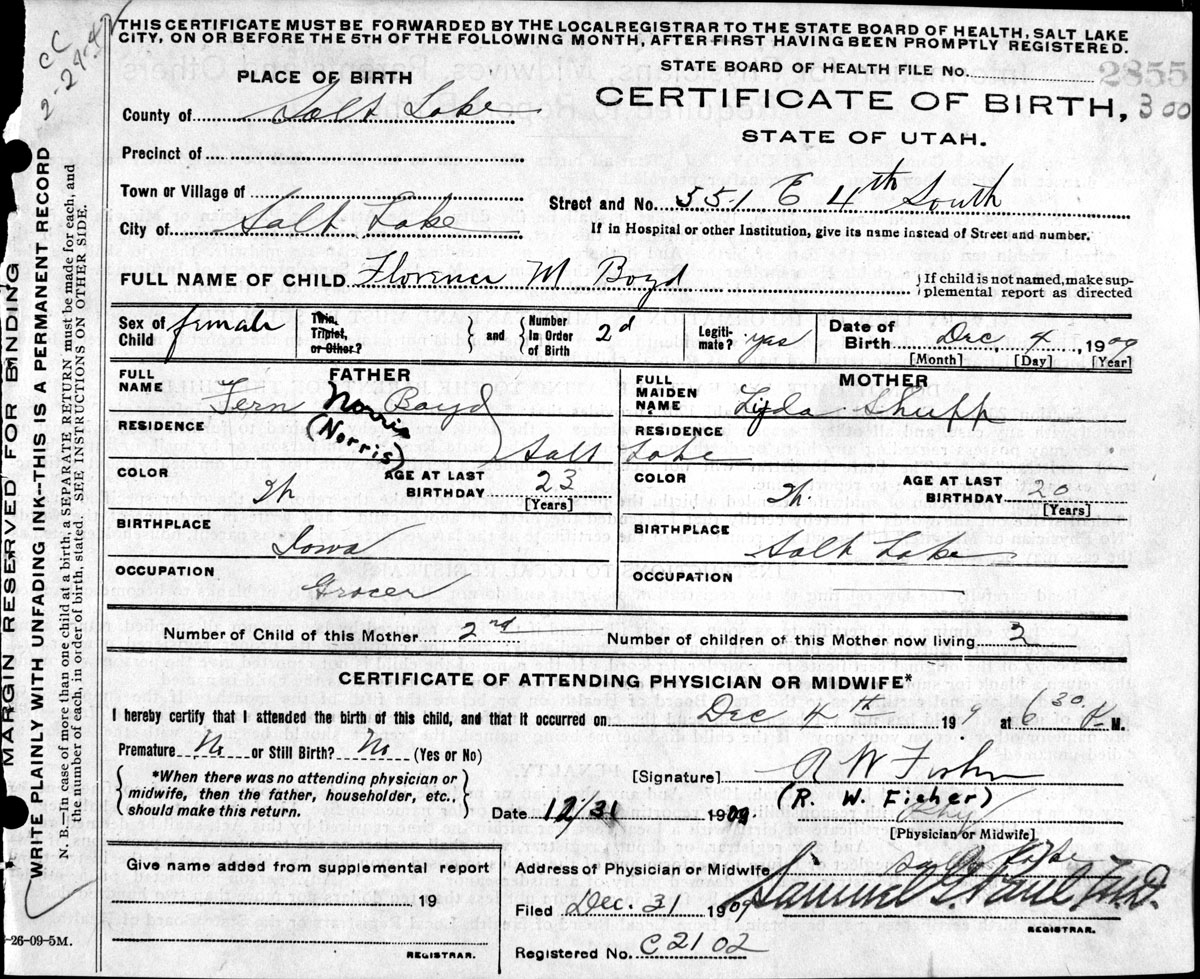 THIS CERTIFICATE MUST BE FORWARDED BY THE LOCAL REGISTRAR TO THE STATE BOARD OF HEALTH, SALT LAKE
CITY, ON OR BEFORE THE 5TH OF THE FOLLOWING MONTH, AFTER FIRST HAVING BEEN PROMPTLY REGISTERED.
STATE BOARD OF HEALTH FILE No.
2855
PLACE OF BIRTH
CERTIFICATE OF BIRTH, 300
STATE OF UTAH.
County of Salt Lake
Precinct of
Town or Village of
Street and No. 551 E 4th South
City of Salt Lake
If in Hospital or other Institution, give its name instead of Street and number.
FULL NAME OF CHILD Florence M Boyd
If child is not named, make sup-
plemental report as directed
Sex of Child female
Twin, Triplet, or Other?
and Number in Order of Birth 2d
Legiti-mate? yes
Date of Birth Dec 4, 1909
[Month] [Day] [Year]
FATHER
FULL NAME Fern Noris Boyd
(Norris)
MOTHER
FULL MAIDEN NAME Lyda Shupp
RESIDENCE
RESIDENCE
Salt Lake
COLOR Wh
AGE AT LAST BIRTHDAY 23
[Years]
COLOR Wh.
AGE AT LAST BIRTHDAY 20
[Years]
BIRTHPLACE Iowa
BIRTHPLACE Salt Lake
OCCUPATION Grocer
OCCUPATION
Number of Child of this Mother 2nd
Number of children of this Mother now living 2
CERTIFICATE OF ATTENDING PHYSICIAN OR MIDWIFE*
I hereby certify that I attended the birth of this child, and that it occurred on Dec 4th 1909 at 6 30 P M.
Premature No or Still Birth? No (Yes or No)
*When there was no attending physician or
midwife, then the father, householder, etc.,
should make this return.
[Signature] R W Fisher
(R. W. Fisher)
Date 12/31 1909.
Phy
[Physician or Midwife].
Give name added from supplemental report
19
REGISTRAR.
Address of Physician or Midwife Salt Lake
Filed Dec. 31 1909
Samuel G. Paul M.D.
REGISTRAR.
Registered No. C2102
MARGIN RESERVED FOR BINDING
WRITE PLAINLY WITH UNFADING INK--THIS IS A PERMANENT RECORD
N. B.—In case of more than one child at a birth, a SEPARATE RETURN must be made for each, and
the number of each, in order of birth, stated. SEE INSTRUCTIONS ON OTHER SIDE.
-26-09-5M.